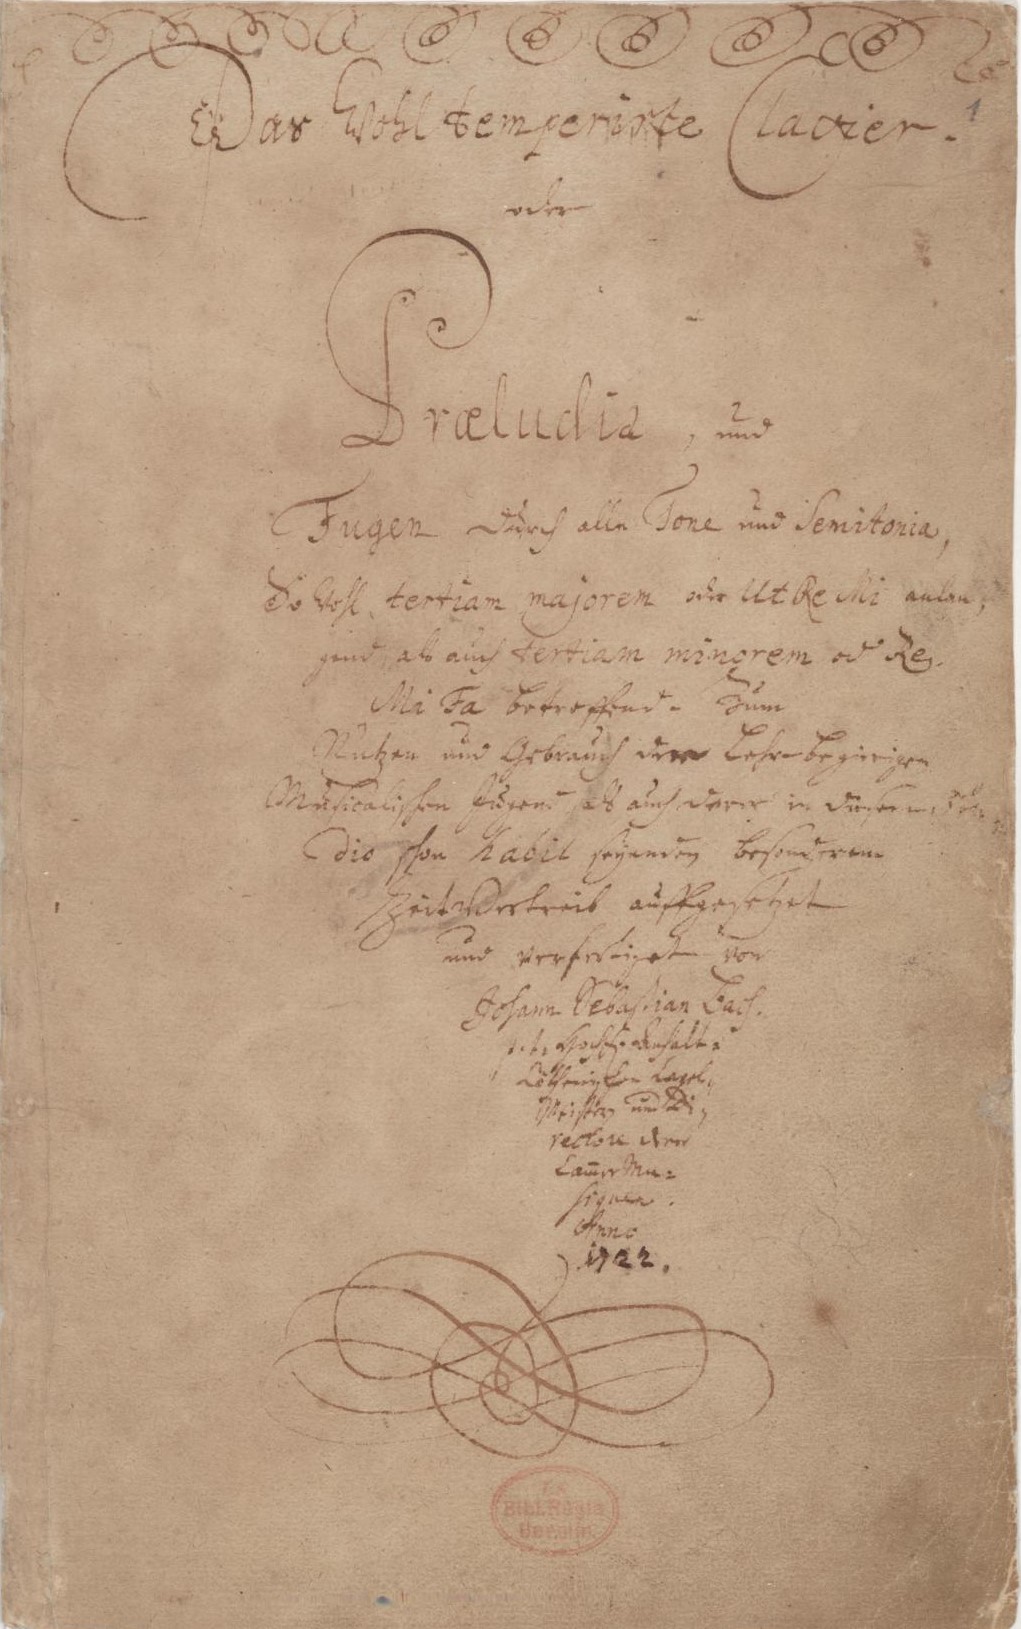 Das Wohltemperirte Clavier.
1
oder
Præludia, und
Fugen durch alle Tone und Semitonia,
So wohl tertiam majorem oder Ut Re Mi anlan,
gend, als auch tertiam minorem od Re
Mi Fa betreffend. Zum
Nutzen und Gebrauch der Lehr-begierigen
Musicalischen Jugend als auch derer in diesem stu
dio schon habil seyenden besonderem
ZeitVertreib auffgesetzet
und verfertiget von
Johann Sebastian Bach.
p. t. HochF. Anhalt-
Cöthenischen Capel-
Meistern und Di-
rectore derer
CammerMu-
siquen.
Anno
1722.
Ex
Bibl. Regia
Berolin.